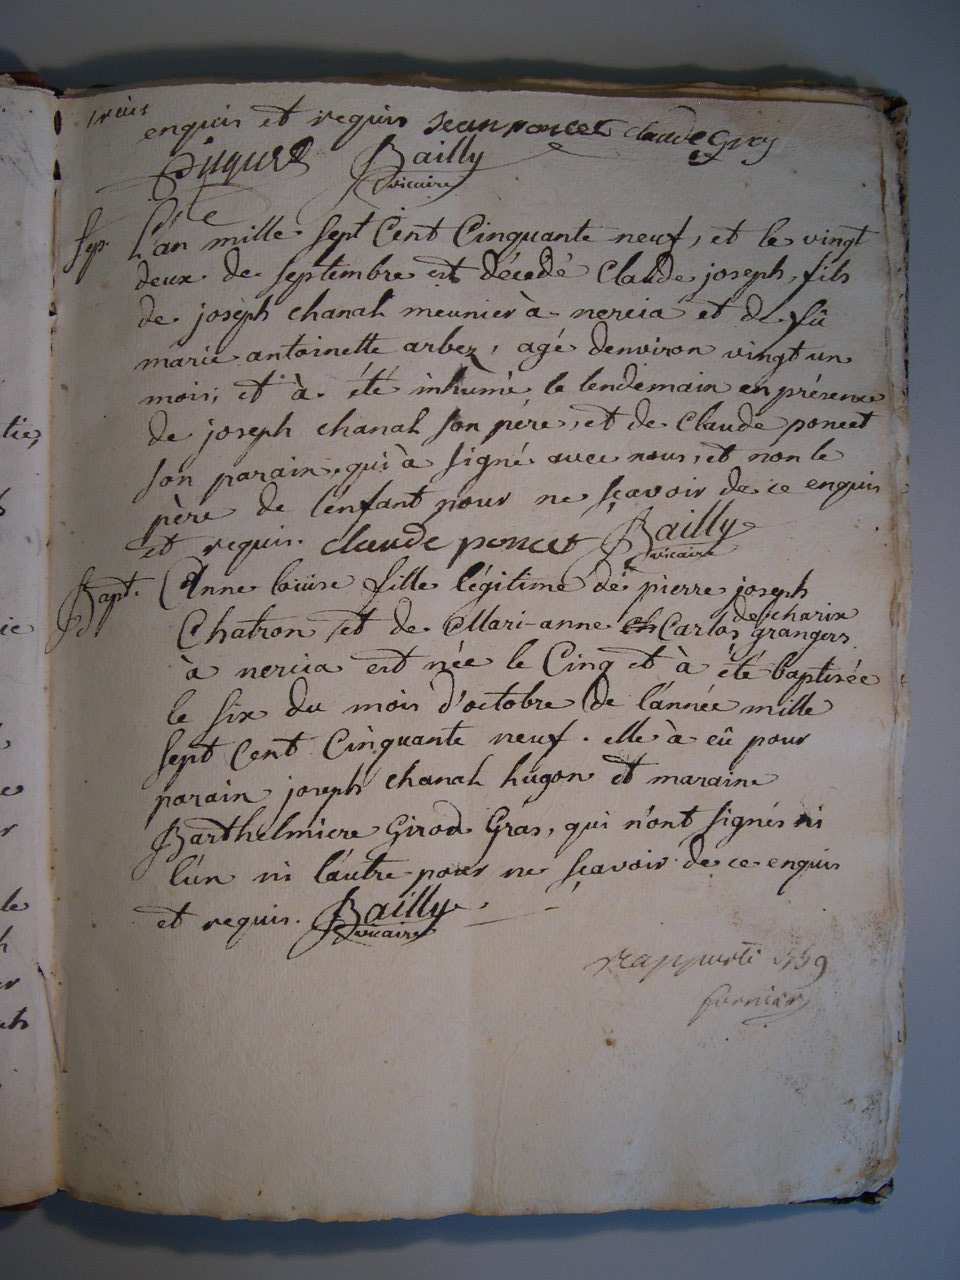 enquis et requis jean poncet claude Groz
Bailly
vicaire
Sep. L'an mille sept Cent Cinquante neuf, et le vingt
deux de septembre est décédé Claude joseph, fils
de joseph chanal meunier à nercia et de fû
marie antoinette arbez, agé denviron vingt un
mois, et à été inhumé le lendemain en présence
de joseph chanal son père, et de Claude poncet
son parain, qui à signé avec nous, et non le
père de l'enfant pour ne sçavoir de ce enquis
et requis. claude poncet Bailly
vicaire
Bapt. Anne loüise fille légitime de pierre joseph
de charix
Chatron, et de Mari-anne Carlos grangers
à nercia est née le Cinq et à été baptisée
le six du mois d'octobre de l'année mille
sept Cent Cinquante neuf. elle à eû pour
parain joseph chanal hugon et maraine
Barthelmiere Girod Gras, qui n'ont signés ni
l'un ni l'autre pour ne sçavoir de ce enquis
et requis. Bailly
vicaire